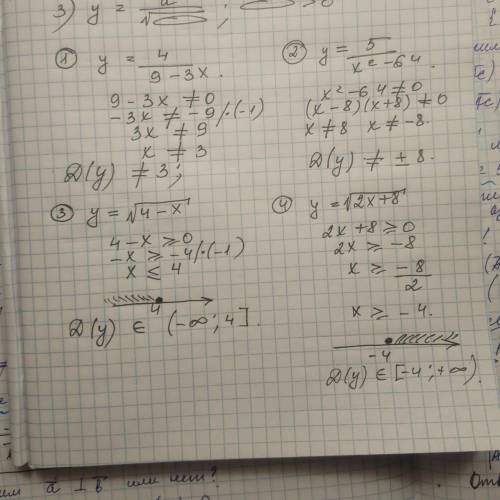 3) y =
① y = 4 / (9 - 3x)
9 - 3x ≠ 0
-3x ≠ -9 /·(-1)
3x ≠ 9
x ≠ 3
D(y) ≠ 3;
② y = 5 / (x² - 64).
x² - 64 ≠ 0
(x - 8)(x + 8) ≠ 0
x ≠ 8 x ≠ -8.
D(y) ≠ ± 8.
③ y = √(4 - x)
4 - x ≥ 0
-x ≥ -4 /·(-1)
x ≤ 4
4
D(y) ∈ (-∞; 4].
④ y = √(2x + 8)
2x + 8 ≥ 0
2x ≥ -8
x ≥ -8/2
x ≥ -4.
-4
D(y) ∈ [-4; +∞).
a ⊥ b или нет?